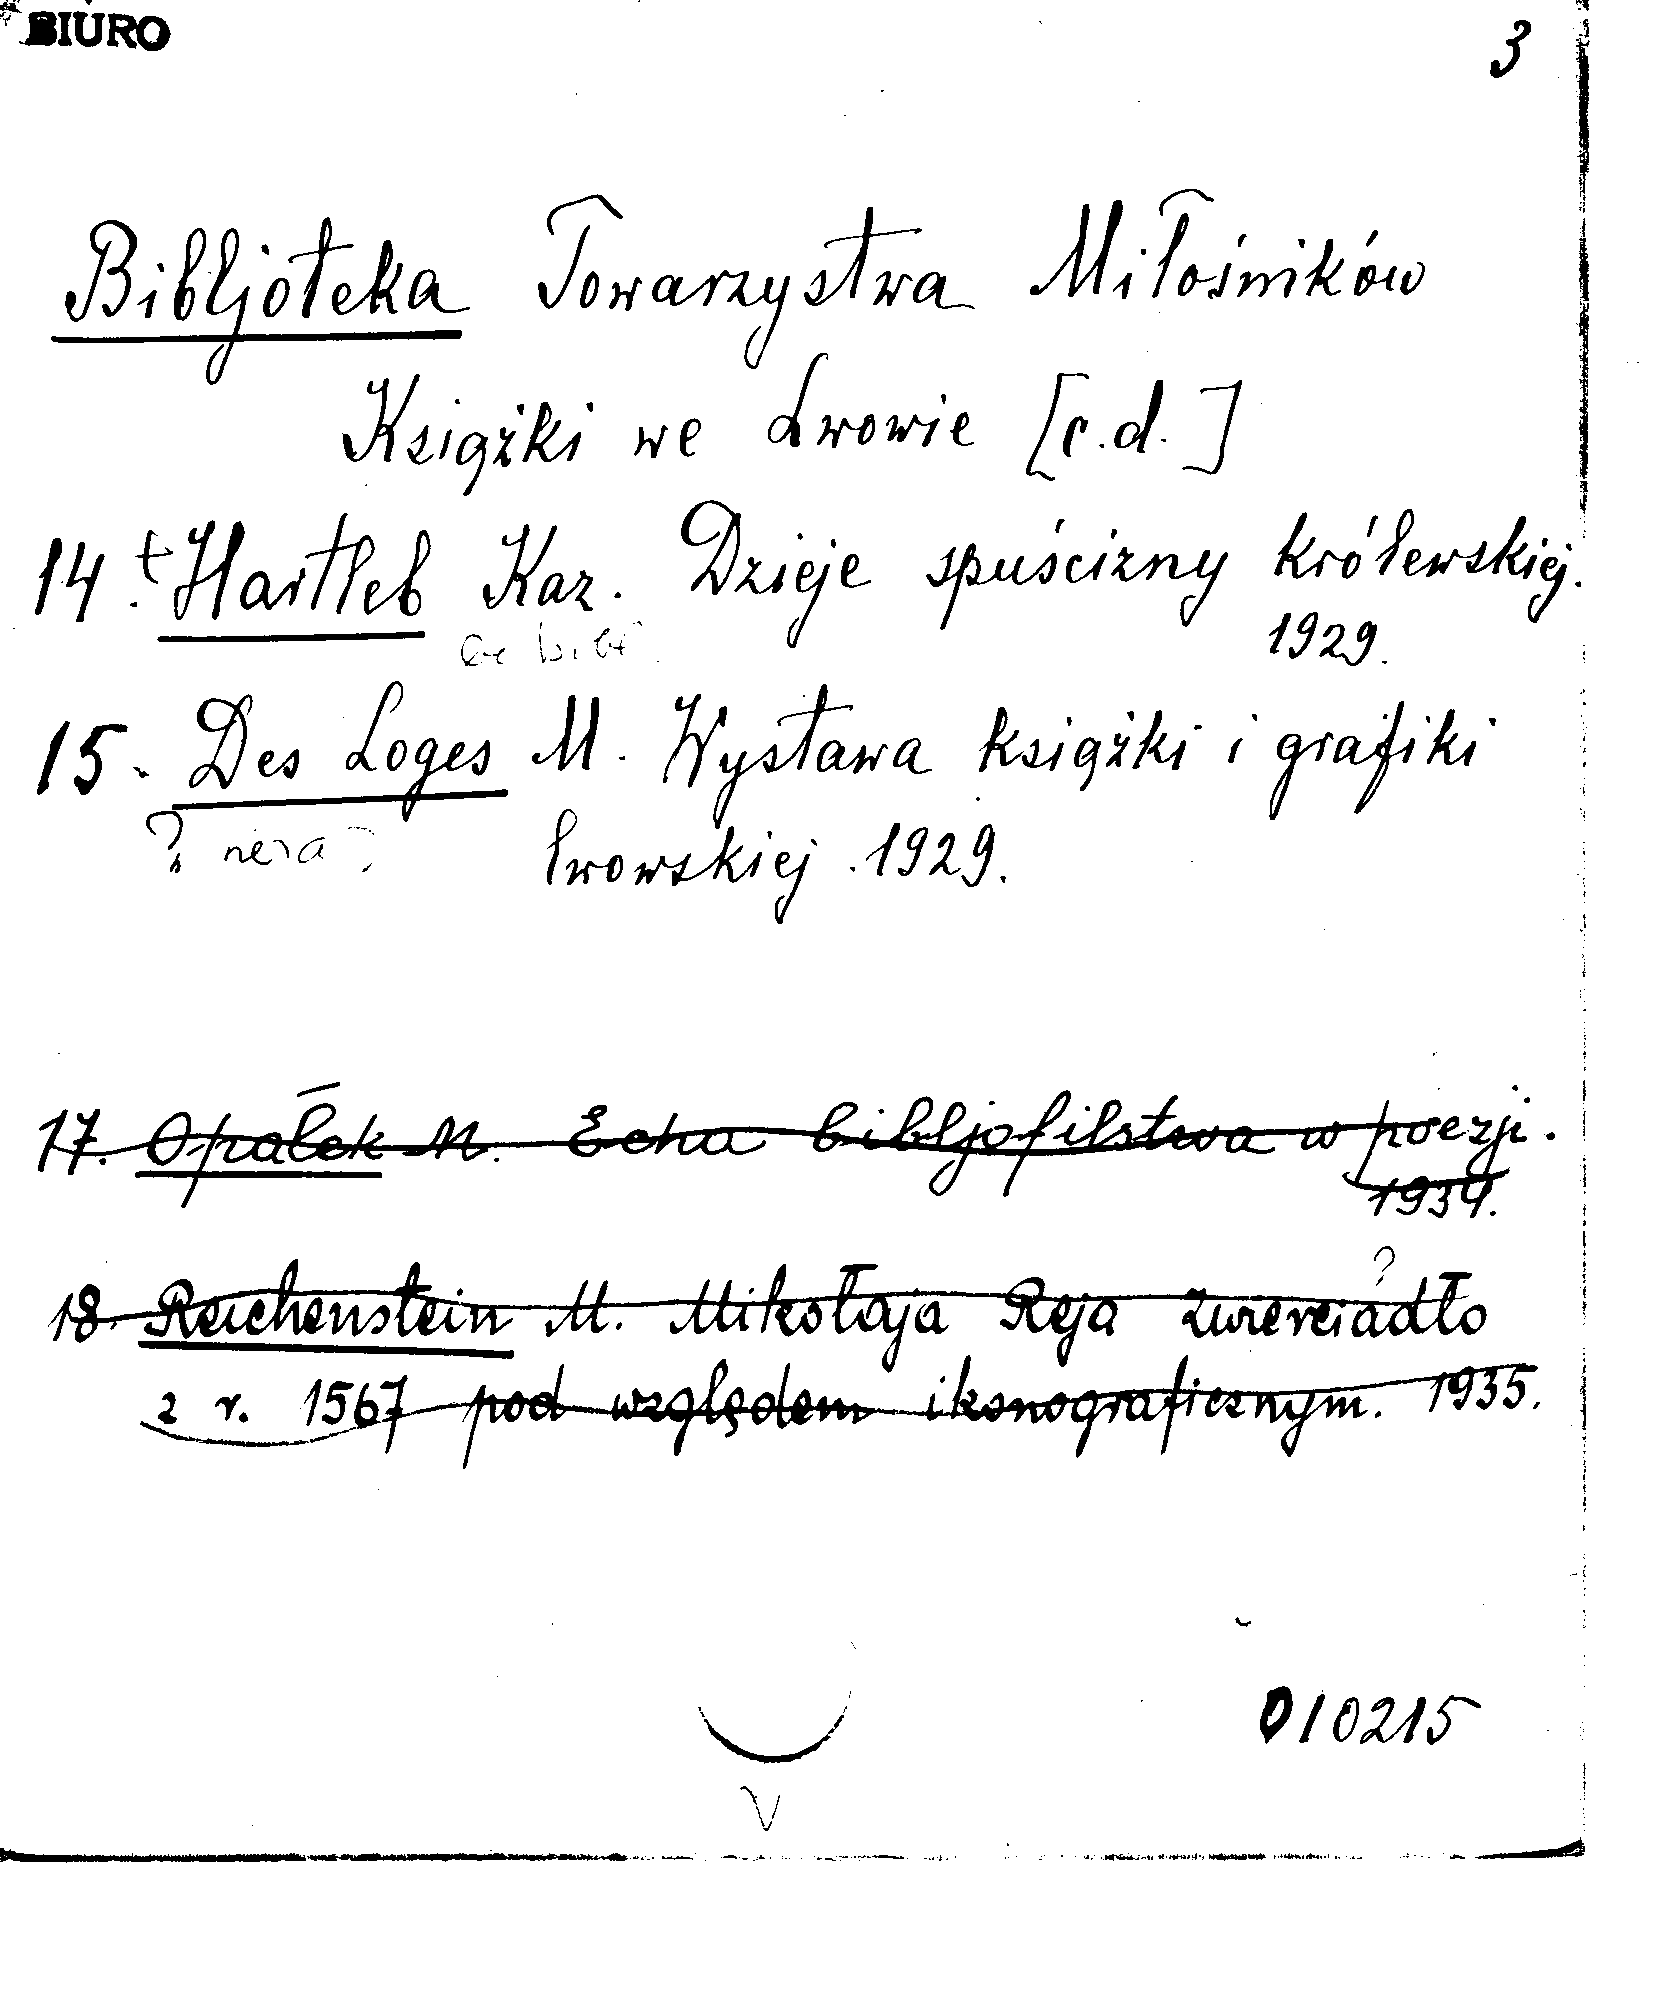 BIURO
3
Bibljoteka Towarzystwa Miłośników
Książki we Lwowie [c.d.]
14. + Hartleb Kaz. Dzieje spuścizny królewskiej.
1929.
15. Des Loges M. Wystawa książki i grafiki
?
lwowskiej. 1929.
17. Opałek M. Echa bibljofilstwa w poezji.
1934.
?
18. Reichenstein M. Mikołaja Reja Zwierciadło
z r. 1567 pod względem ikonograficznym. 1935.
010215
V